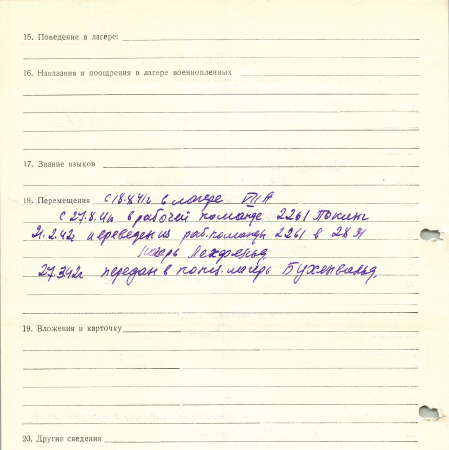 15. Поведение в лагере:
16. Наказания и поощрения в лагере военнопленных
17. Знание языков
18. Перемещения с 18.8.41г в лагере VII А
с 27.8.41г в рабочей команде 2261 Покинг
21.2.42г переведен из раб.команды 2261 в
лагерь Лехфельд
27.3.42г передан в конц.лагерь Бухенвальд.
19. Вложения в карточку
20. Другие сведения